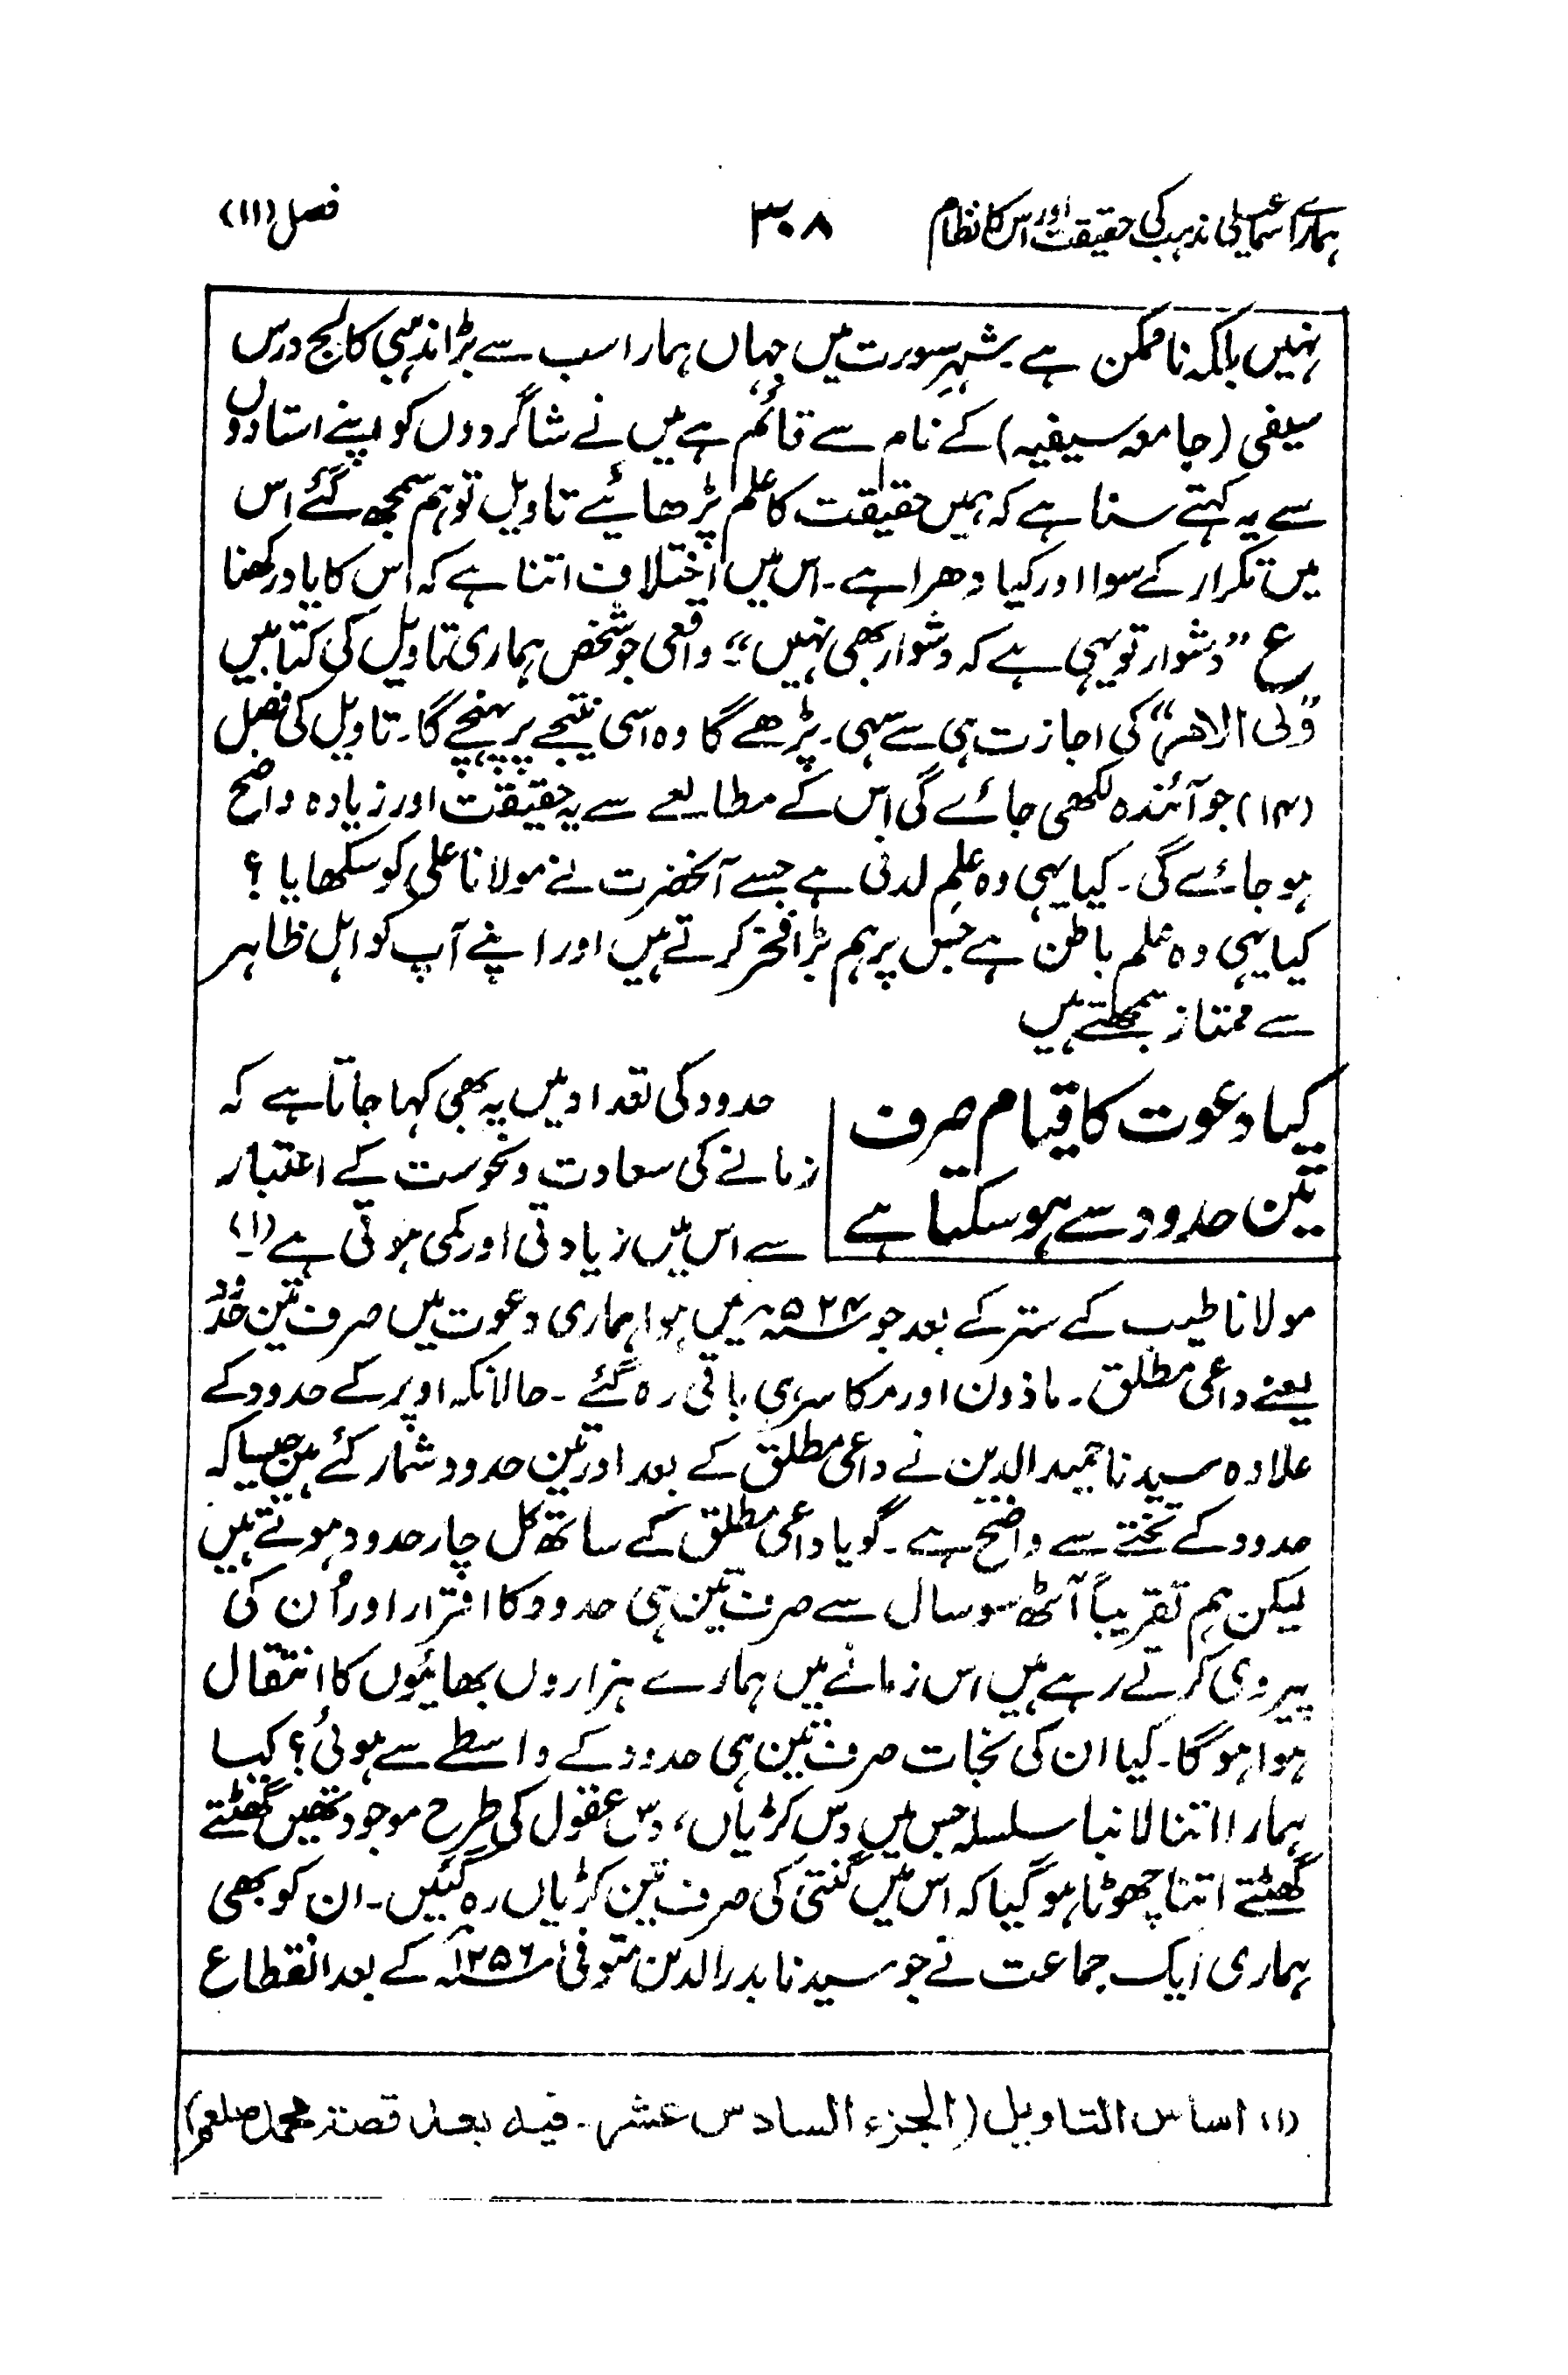 ہمارے اسماعیلی مذہب کی حقیقت اور اس کا نظام ۳۰۸ فصل (۱۱)
نہیں بلکہ ناممکن ہے۔ شہرِ سورت میں جہاں ہمارا سب سے بڑا مذہبی کالج درس
سیفی (جامعہ سیفیہ) کے نام سے قائم ہے میں نے شاگردوں کو اپنے استادوں
سے یہ کہتے سنا ہے کہ ہمیں حقیقت کا علم پڑھائیے تاویل تو ہم سمجھ گئے اس
میں تکرار کے سوا اور کیا دھرا ہے۔ اس میں اختلاف اتنا ہے کہ اس کا یاد رکھنا
ع ”دشوار تو یہی ہے کہ دشوار بھی نہیں“ واقعی جو شخص ہماری تاویل کی کتابیں
”ولی الامر“ کی اجازت ہی سے سہی۔ پڑھے گا وہ اسی نتیجے پر پہنچے گا۔ تاویل کی فصل
(۱۴) جو آئندہ لکھی جائے گی اس کے مطالعے سے یہ حقیقت اور زیادہ واضح
ہو جائے گی۔ کیا یہی وہ علمِ لدنی ہے جسے آنحضرت نے مولانا علی کو سکھایا ؟
کیا یہی وہ علم باطن ہے جس پر ہم بڑا فخر کرتے ہیں اور اپنے آپ کو اہل ظاہر
سے ممتاز سمجھتے ہیں
کیا دعوت کا قیام صرف
تین حدود سے ہو سکتا ہے
حدود کی تعداد میں یہ بھی کہا جاتا ہے کہ
زمانے کی سعادت و نحوست کے اعتبار
سے اس میں زیادتی اور کمی ہوتی ہے (۱)۔
مولانا طیب کے ستر کے بعد جو ۵۲۴ھ میں ہوا ہماری دعوت میں صرف تین حدود
یعنے داعی مطلق۔ ماذون اور مکاسر ہی باقی رہ گئے۔ حالانکہ اوپر کے حدود کے
علاوہ سیدنا حمید الدین نے داعی مطلق کے بعد اور تین حدود شمار کئے ہیں جیسا کہ
حدود کے تختے سے واضح ہے۔ گویا داعی مطلق کے ساتھ کل چار حدود ہوتے ہیں
لیکن ہم تقریباً آٹھ سو سال سے صرف تین ہی حدود کا اقرار اور اُن کی
پیروی کرتے رہے ہیں اس زمانے میں ہمارے ہزاروں بھائیوں کا انتقال
ہوا ہوگا۔ کیا ان کی نجات صرف تین ہی حدود کے واسطے سے ہوئی؟ کیا
ہمارا اتنا لانبا سلسلہ جس میں دس کڑیاں، دس عقول کی طرح موجود تھیں گھٹتے
گھٹتے اتنا چھوٹا ہو گیا کہ اس میں گنتی کی صرف تین کڑیاں رہ گئیں۔ ان کو بھی
ہماری ایک جماعت نے جو سیدنا بدرالدین متوفی ۱۲۵۶ھ کے بعد انقطاع
(۱) اساس التاویل (الجزء السادس عشر۔ فیہ بعض قصۃ محمد صلعم)